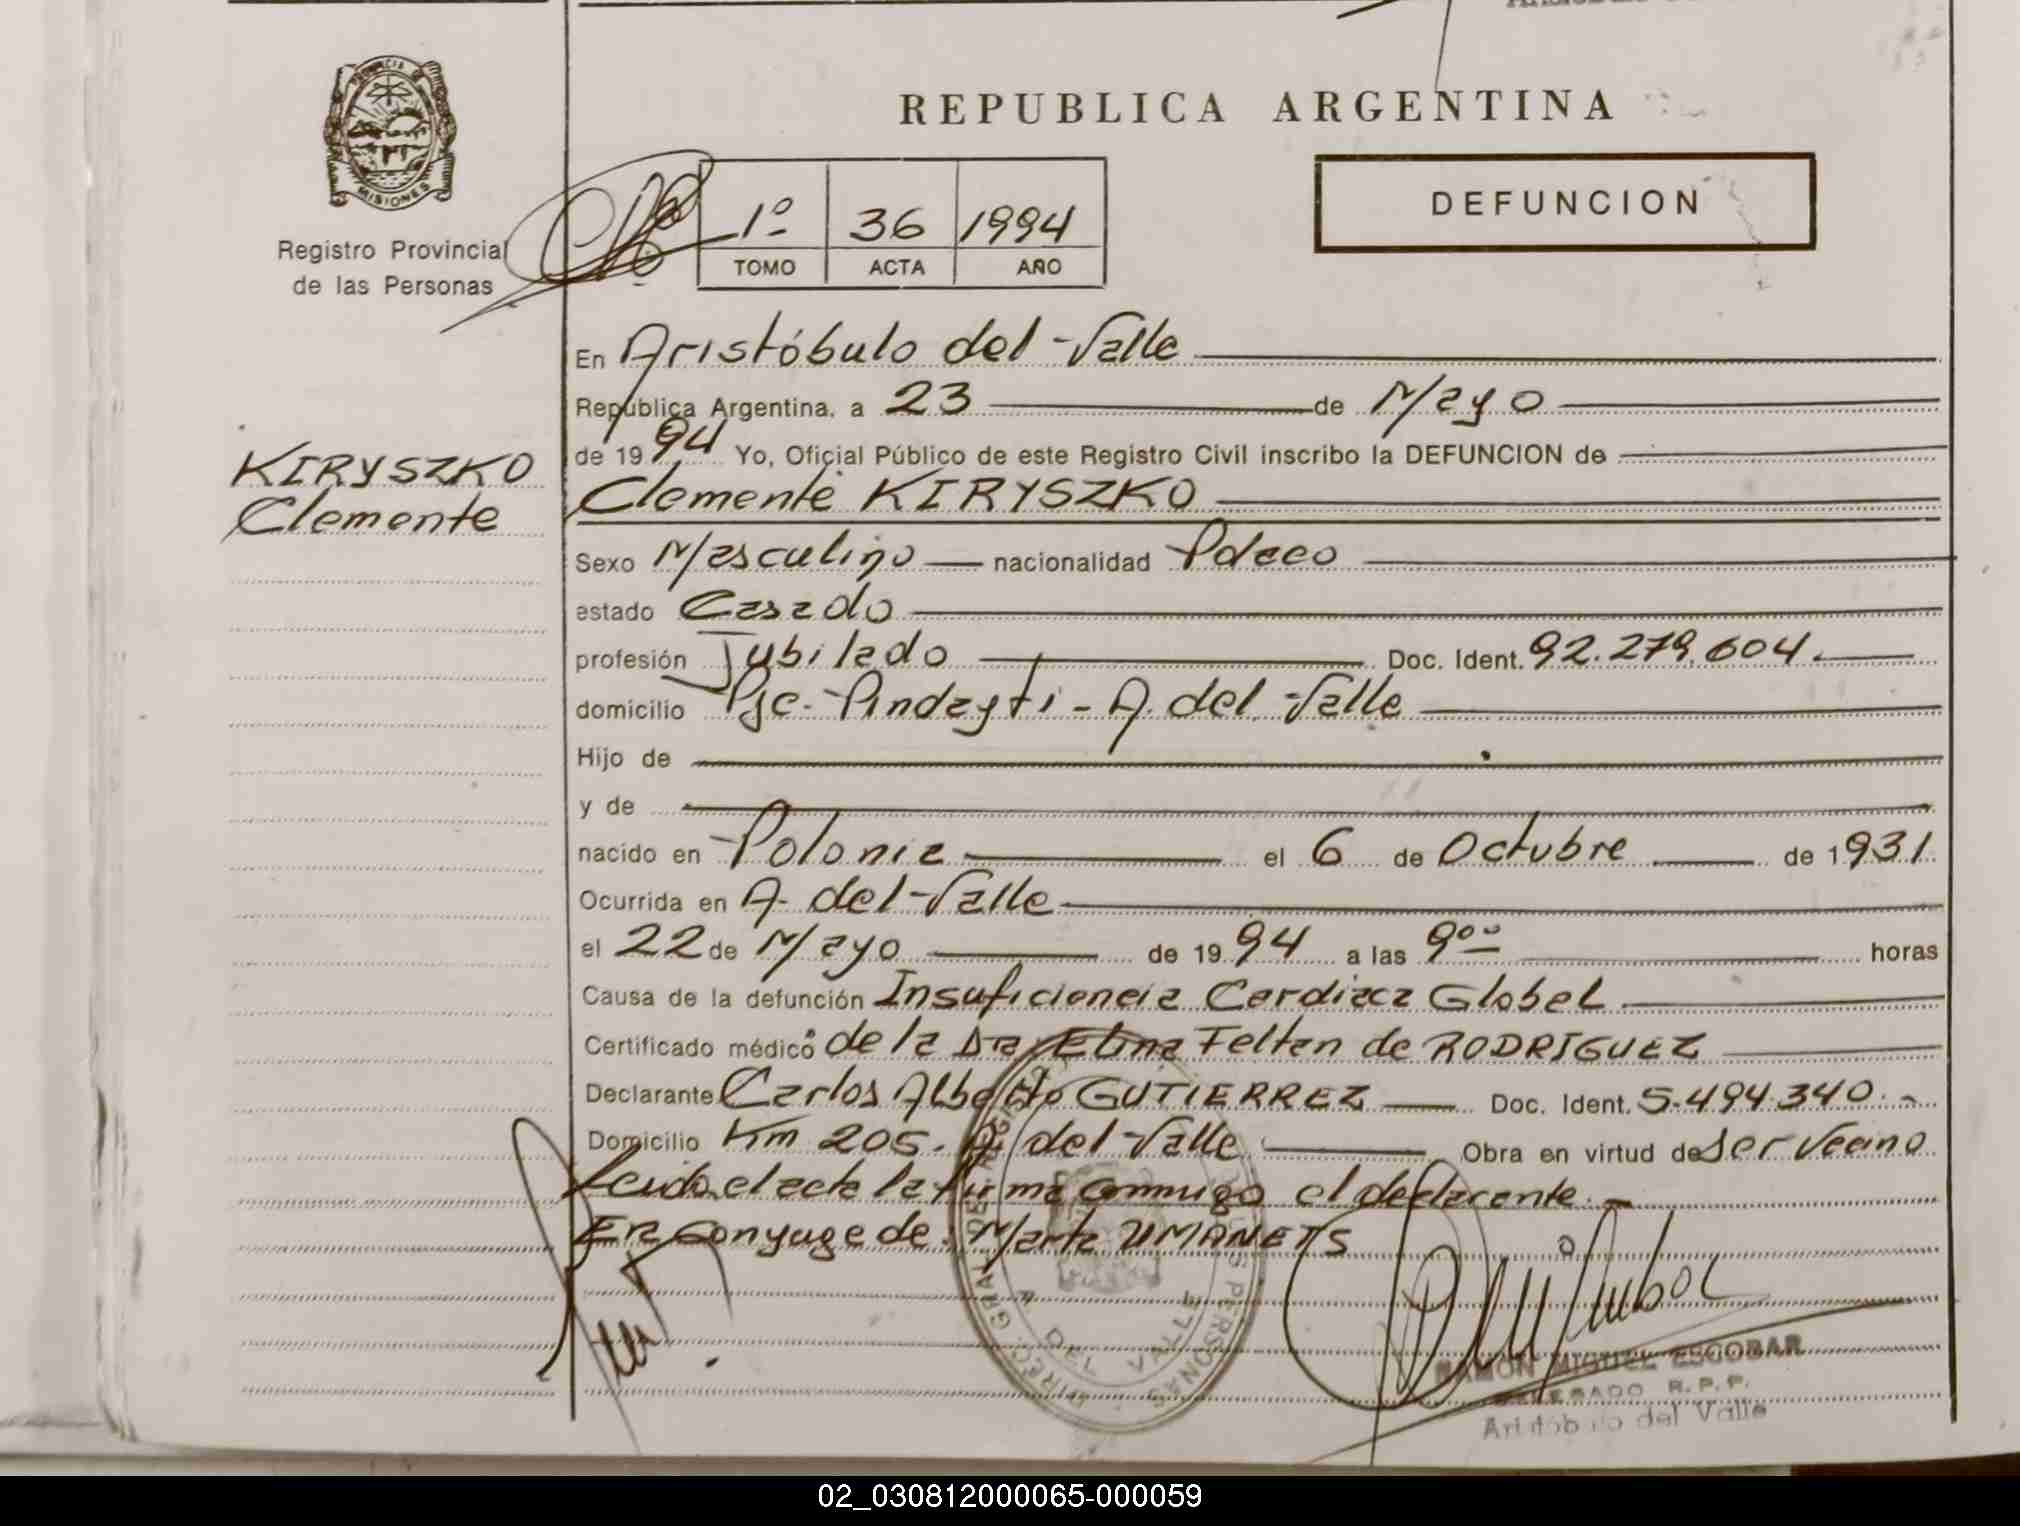 PROVINCIA DE
MISIONES
Registro Provincial
de las Personas
REPUBLICA ARGENTINA
1º 36 1994
TOMO ACTA AÑO
DEFUNCION
KIRYSZKO
Clemente
En Aristóbulo del Valle
República Argentina, a 23 de Mayo
de 1994 Yo, Oficial Público de este Registro Civil inscribo la DEFUNCION de
Clemente KIRYSZKO
Sexo Masculino nacionalidad Polaco
estado Casado
profesión Jubilado Doc. Ident. 92.279.604.
domicilio Pje. Pindayti - A. del Valle
Hijo de
y de
nacido en Polonia el 6 de Octubre de 1931
Ocurrida en A. del Valle
el 22 de Mayo de 1994 a las 9ºº horas
Causa de la defunción Insuficiencia Cardiaca Global
Certificado médico de la Dra Elina Feltan de RODRIGUEZ
Declarante Carlos Alberto GUTIERREZ Doc. Ident. 5.494.340.-
Domicilio Km 205. A. del Valle Obra en virtud de ser vecino
Leida el acta la firma conmigo el declarante.-
ER Conyuge de: Marta UMANETS
DEL VALLE
RAMON MIGUEL ESCOBAR
DELEGADO R.P.P.
Aristóbulo del Valle
02_030812000065-000059